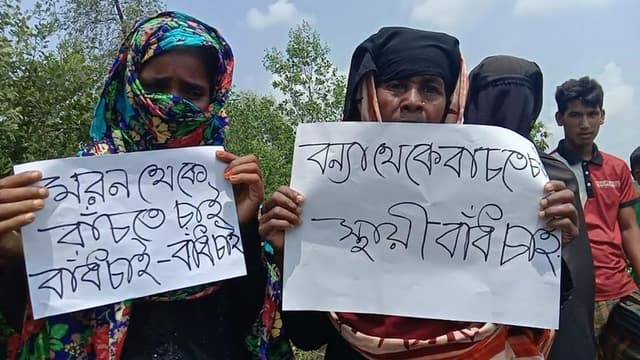 মরন থেকে
বাঁচতে চাই
বাঁধ চাই - বাঁধ চাই
বন্যা থেকে বাচতে চাই
স্থায়ী বাঁধ চাই